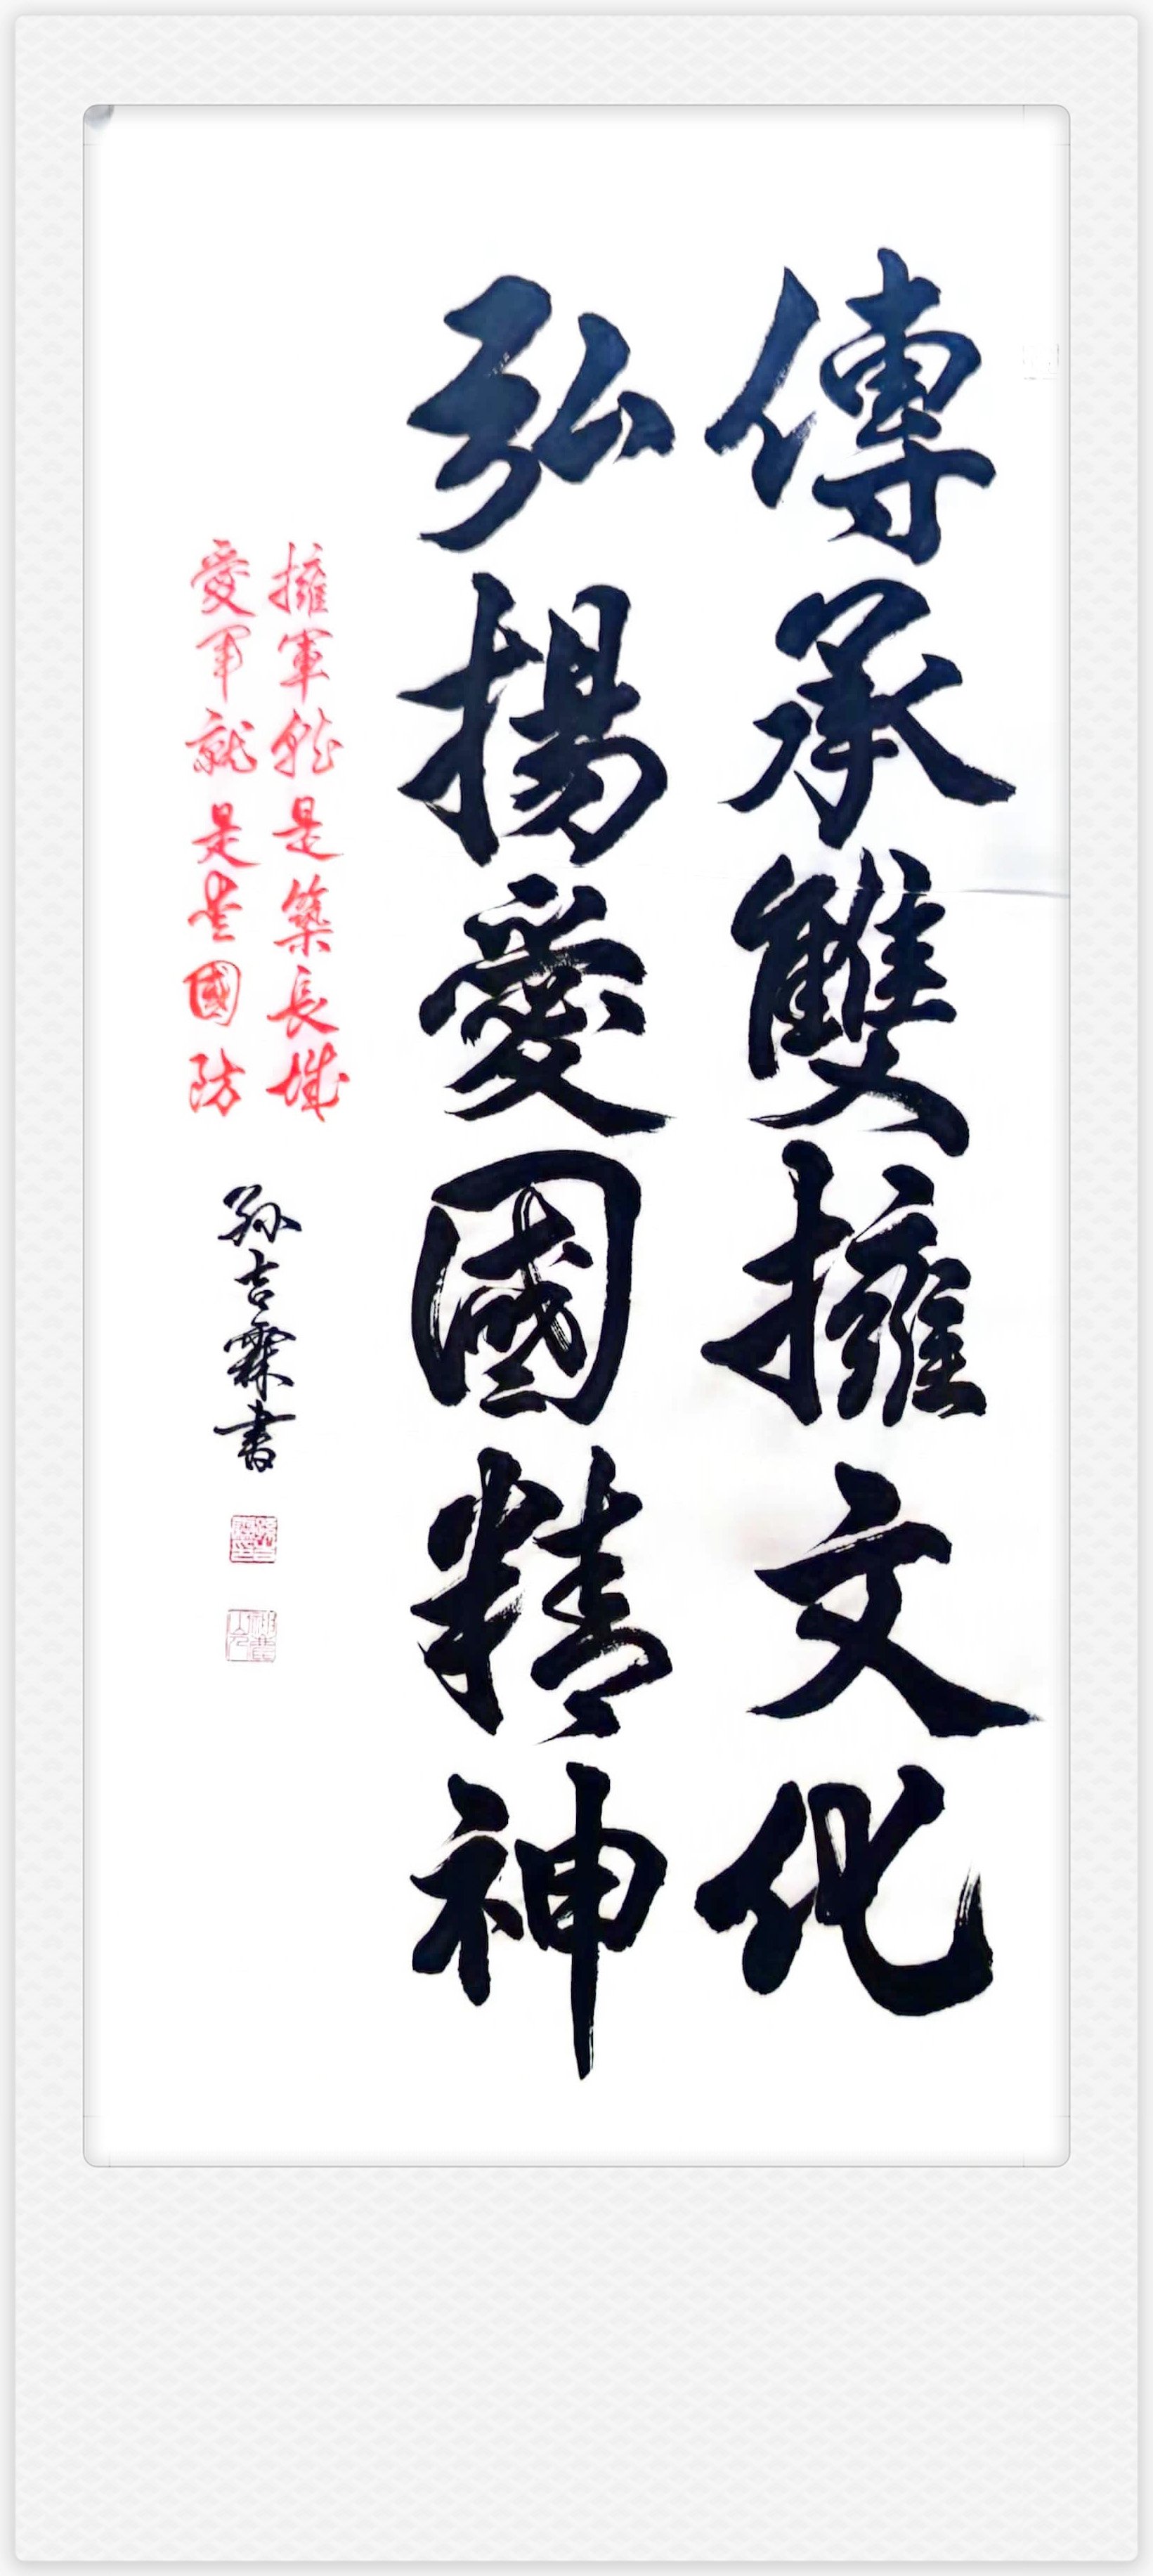 傳承雙擁文化
弘揚愛國精神
擁軍就是築長城
愛軍就是愛國防
孫吉霖書